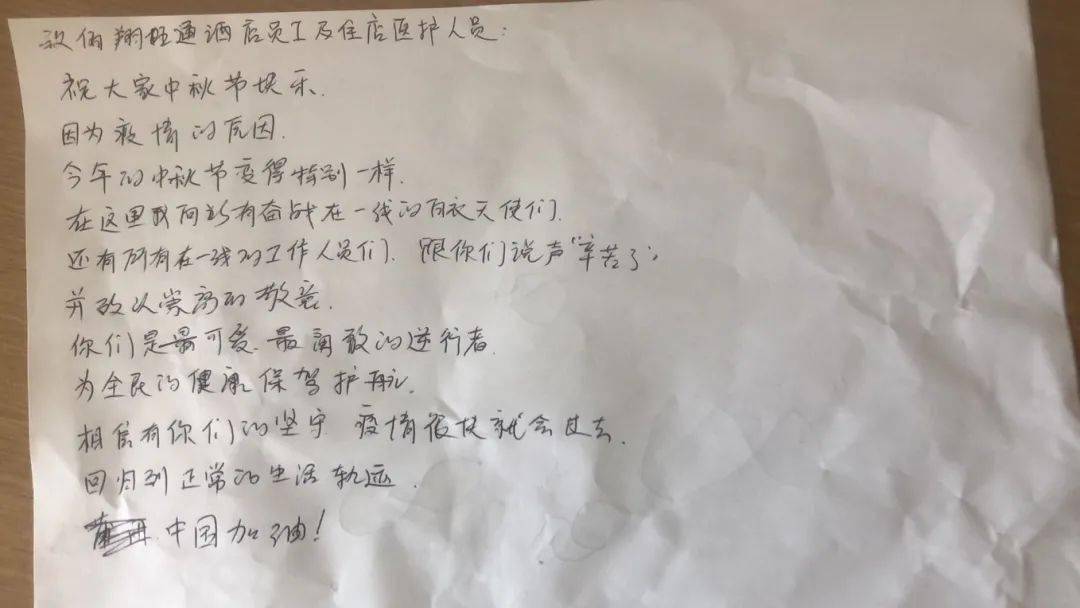 致佰翔旺通酒店员工及住店医护人员:
祝大家中秋节快乐.
因为疫情的原因.
今年的中秋节变得特别一样.
在这里我向所有奋战在一线的白衣天使们.
还有所有在一线的工作人员们. 跟你们说声"辛苦了"
并致以崇高的敬意.
你们是最可爱.最勇敢的逆行者.
为全民的健康保驾护航.
相信有你们的坚守 疫情很快就会过去.
回归到正常的生活轨迹.
中国加油!